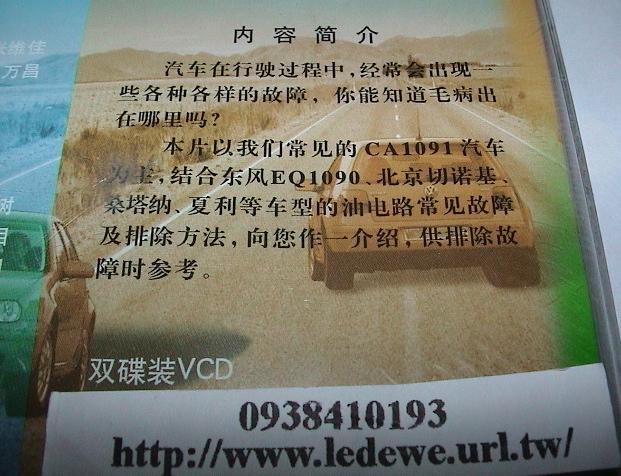 内容简介
汽车在行驶过程中，经常会出现一
些各种各样的故障，你能知道毛病出
在哪里吗？
本片以我们常见的CA1091汽车
为主，结合东风EQ1090、北京切诺基、
桑塔纳、夏利等车型的油电路常见故障
及排除方法，向您作一介绍，供排除故
障时参考。
维佳
万昌
对
目
双碟装VCD
0938410193
http://www.ledewe.url.tw/